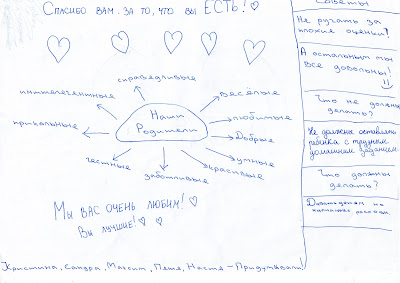 Спасибо вам за то, что вы ЕСТЬ!
справедливые
интеллегентные
весёлые
прикольные
Наши
Родители
любимые
Добрые
честные
заботливые
красивые
умные
Мы вас очень любим!
Вы лучшие!
Кристина, Сандра, Максит, Петя, Настя – Придумывали!
Советы
Не ругать за
плохие оценки!
А остальным мы
все довольны!
Что не должны
делать?
Не должны оставлять
ребёнка с трудным
домашним заданием.
Что должны
делать?